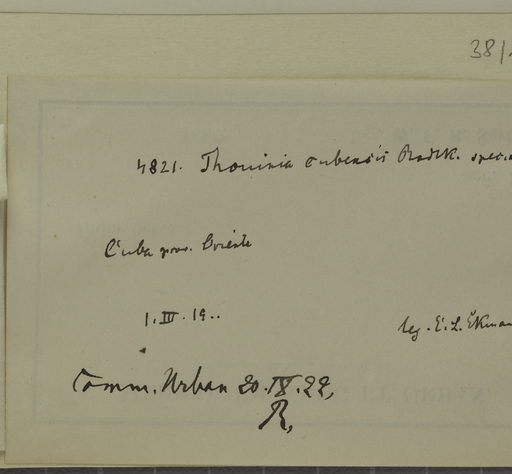 38/
4821. Thouinia cubensis Radlk. spec.
Cuba prov. Oriente
1.III.19..
leg. E. L. Ekman
Comm. Urban 20.IX.22,
R,